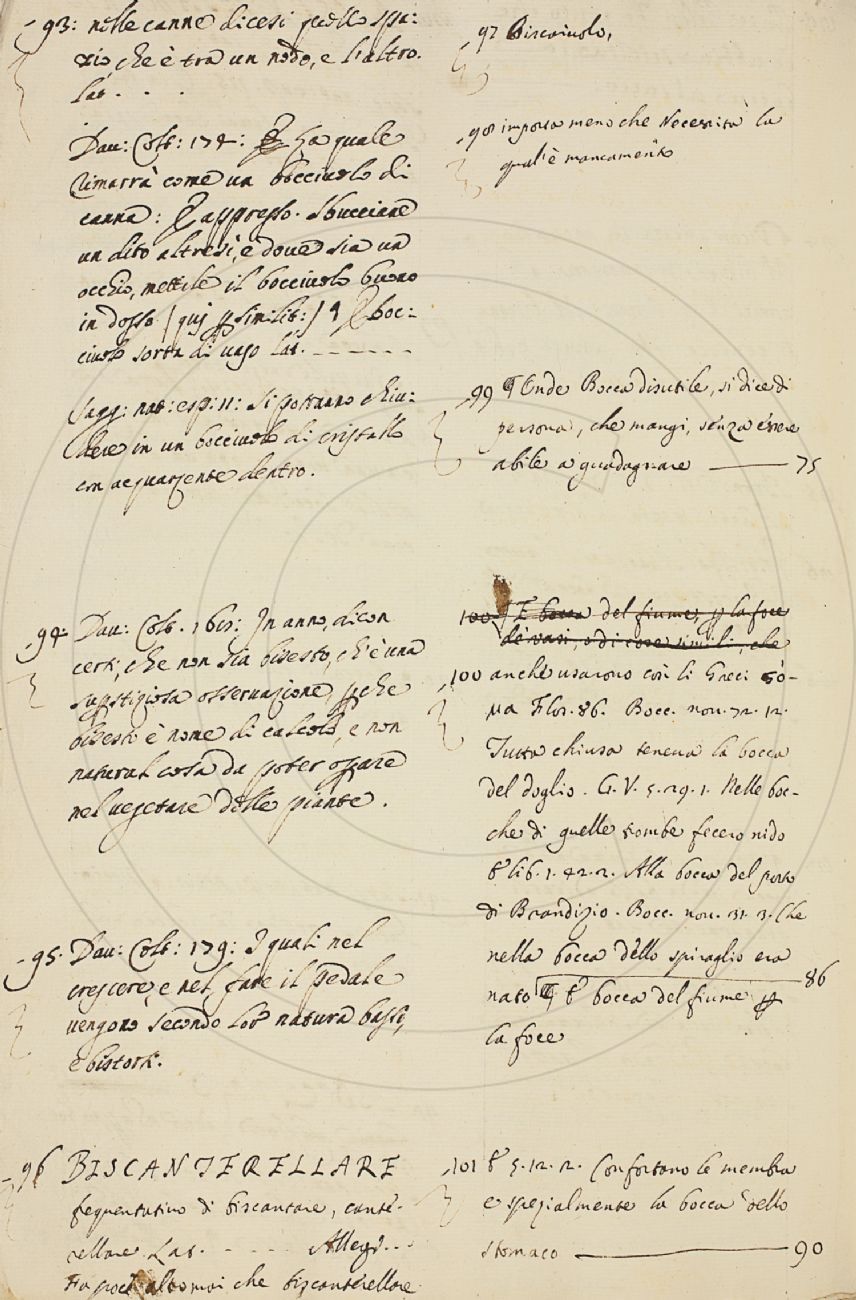 93: nelle canne dicesi quello spa-
zio, che è tra un nodo, e l'altro.
Lat. . . .
Dav: Colt: 174: La quale
rimarrà come un bocciuolo di
canna: E appresso. Sbucciane
un dito altresì, e dove sia un
occhio, mettile il bocciuolo buono
in dosso / qui simi lit: / ¶ E boc-
ciuolo sorta di vaso Lat. - - - - - -
Sagg: nat: esp: 11: Si potranno chiu-
dere in un bocciuolo di cristallo
con acquarzente dentro.
94: Dav: Colt. 161: In anno, dicon
certi, che non sia bisesto, ch'è una
superstiziosa osservazione, che
bisesti è nome di calcolo, e non
natural cosa da poter oprare
nel vegetare delle piante.
95. Dav: Colt: 179: I quali nel
crescere, e nel fare il pedale
vengono secondo lor natura bassi,
e bistorti.
96 BISCANTERELLARE
frequentativo di biscantare, cante-
rellare Lat. - - - - Allegr. . . .
Fa poch' altro mai che biscanterellare
97 Biscaiuolo,
98 importa meno che Necessità la
qual'è mancamento
99 ¶ Onde Bocca disutile, si dice di
persona, che mangi, senza essere
abile a guadagnare ——— 75
100 ¶ E bocca del fiume, p la foce
de vasi, o di cose simili, che
100 anche usarono così li Greci ςό-
μα Flos. 86. Bocc. nov. 72. 12.
Tutta chiusa teneva la bocca
del doglio. G. V. 5. 29. 1. Nelle boc-
che di quelle tombe fecero nido
E lib. 1. 42. 2. Alla bocca del porto
di Brandizio. Bocc. nov. 31. 3. Che
nella bocca dello spiraglio era
nato ——— 86
¶ E bocca del fiume p
la foce
101 E 5. 12. 2. Confortano le membra
e spezialmente la bocca dello
stomaco ——— 90